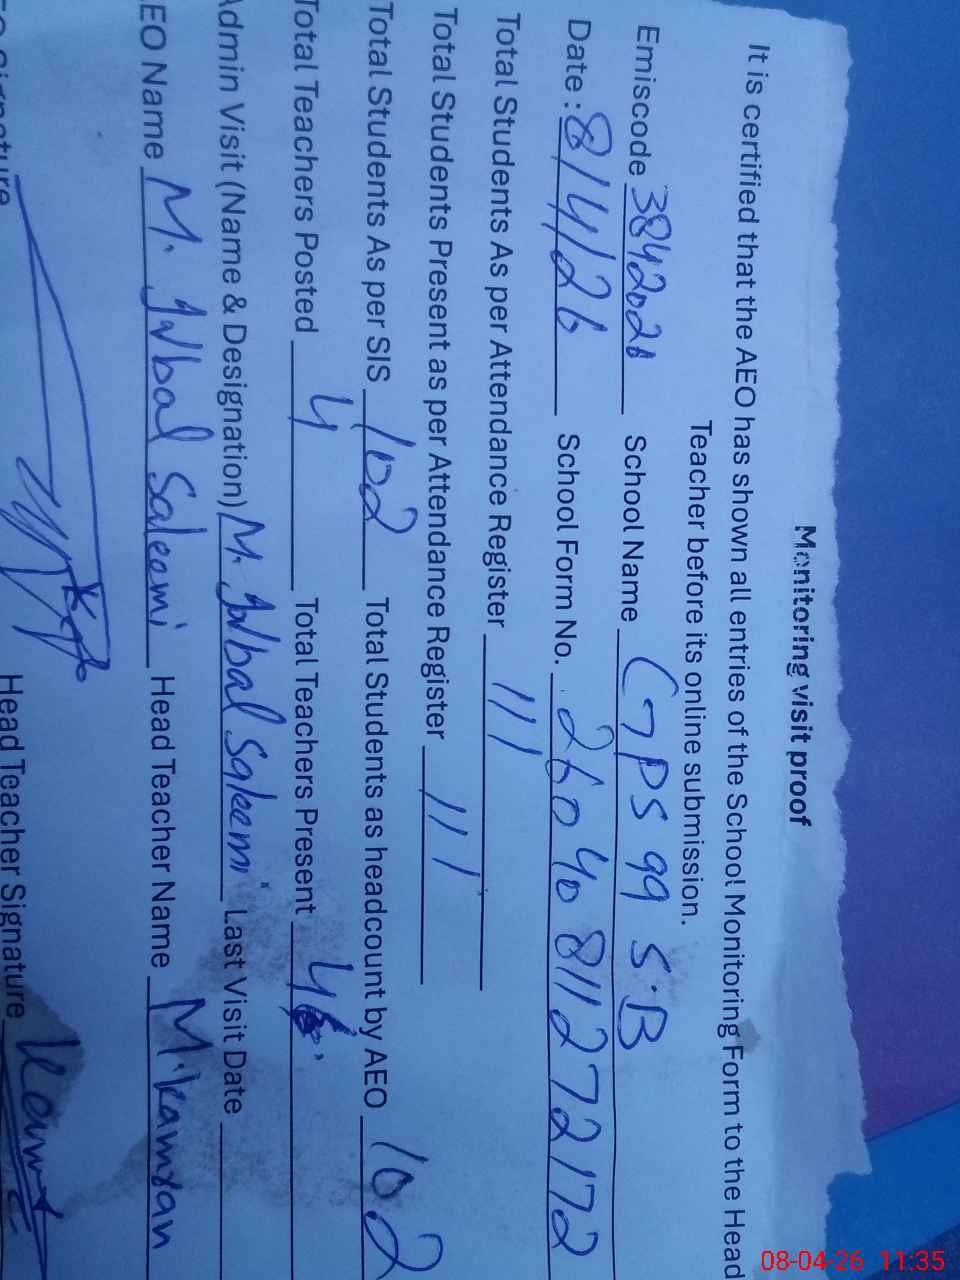 Monitoring visit proof
It is certified that the AEO has shown all entries of the School Monitoring Form to the Head
Teacher before its online submission.
Emiscode 38420201 School Name GPS 99 S.B
Date : 8/4/26 School Form No. 26040811272172
Total Students As per Attendance Register 111
Total Students Present as per Attendance Register 111
Total Students As per SIS 102 Total Students as headcount by AEO 102
Total Teachers Posted 4 Total Teachers Present 4
Admin Visit (Name & Designation) M. Iqbal Saleemi Last Visit Date
AEO Name M. Iqbal Saleemi Head Teacher Name M. Kamran
Signature Head Teacher Signature
08-04-26 11:35